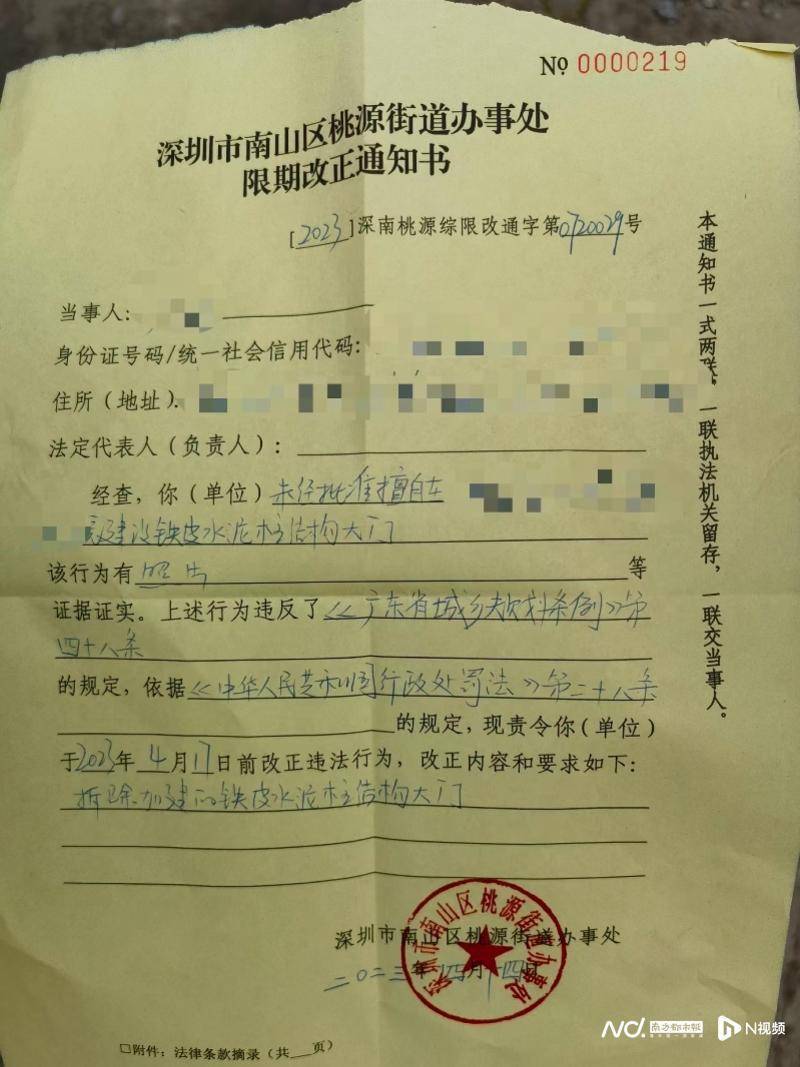 № 0000219
深圳市南山区桃源街道办事处
限期改正通知书
[2023]深南桃源综限改通字第0720029号
当事人：
身份证号码/统一社会信用代码：
住所（地址）
法定代表人（负责人）：
经查，你（单位）未经批准擅自在
建设铁皮水泥柱结构大门
该行为有 照片 等
证据证实。上述行为违反了《广东省城乡规划条例》第
四十八条
的规定，依据《中华人民共和国行政处罚法》第二十八条
的规定，现责令你（单位）
于2023年4月17日前改正违法行为，改正内容和要求如下：
拆除加建的铁皮水泥柱结构大门
深圳市南山区桃源街道办事处
二〇二三年四月十四日
深圳市南山区桃源街道办事处
□附件：法律条款摘录（共 页）
本通知书一式两联，一联执法机关留存，一联交当事人。
南方都市报
N视频